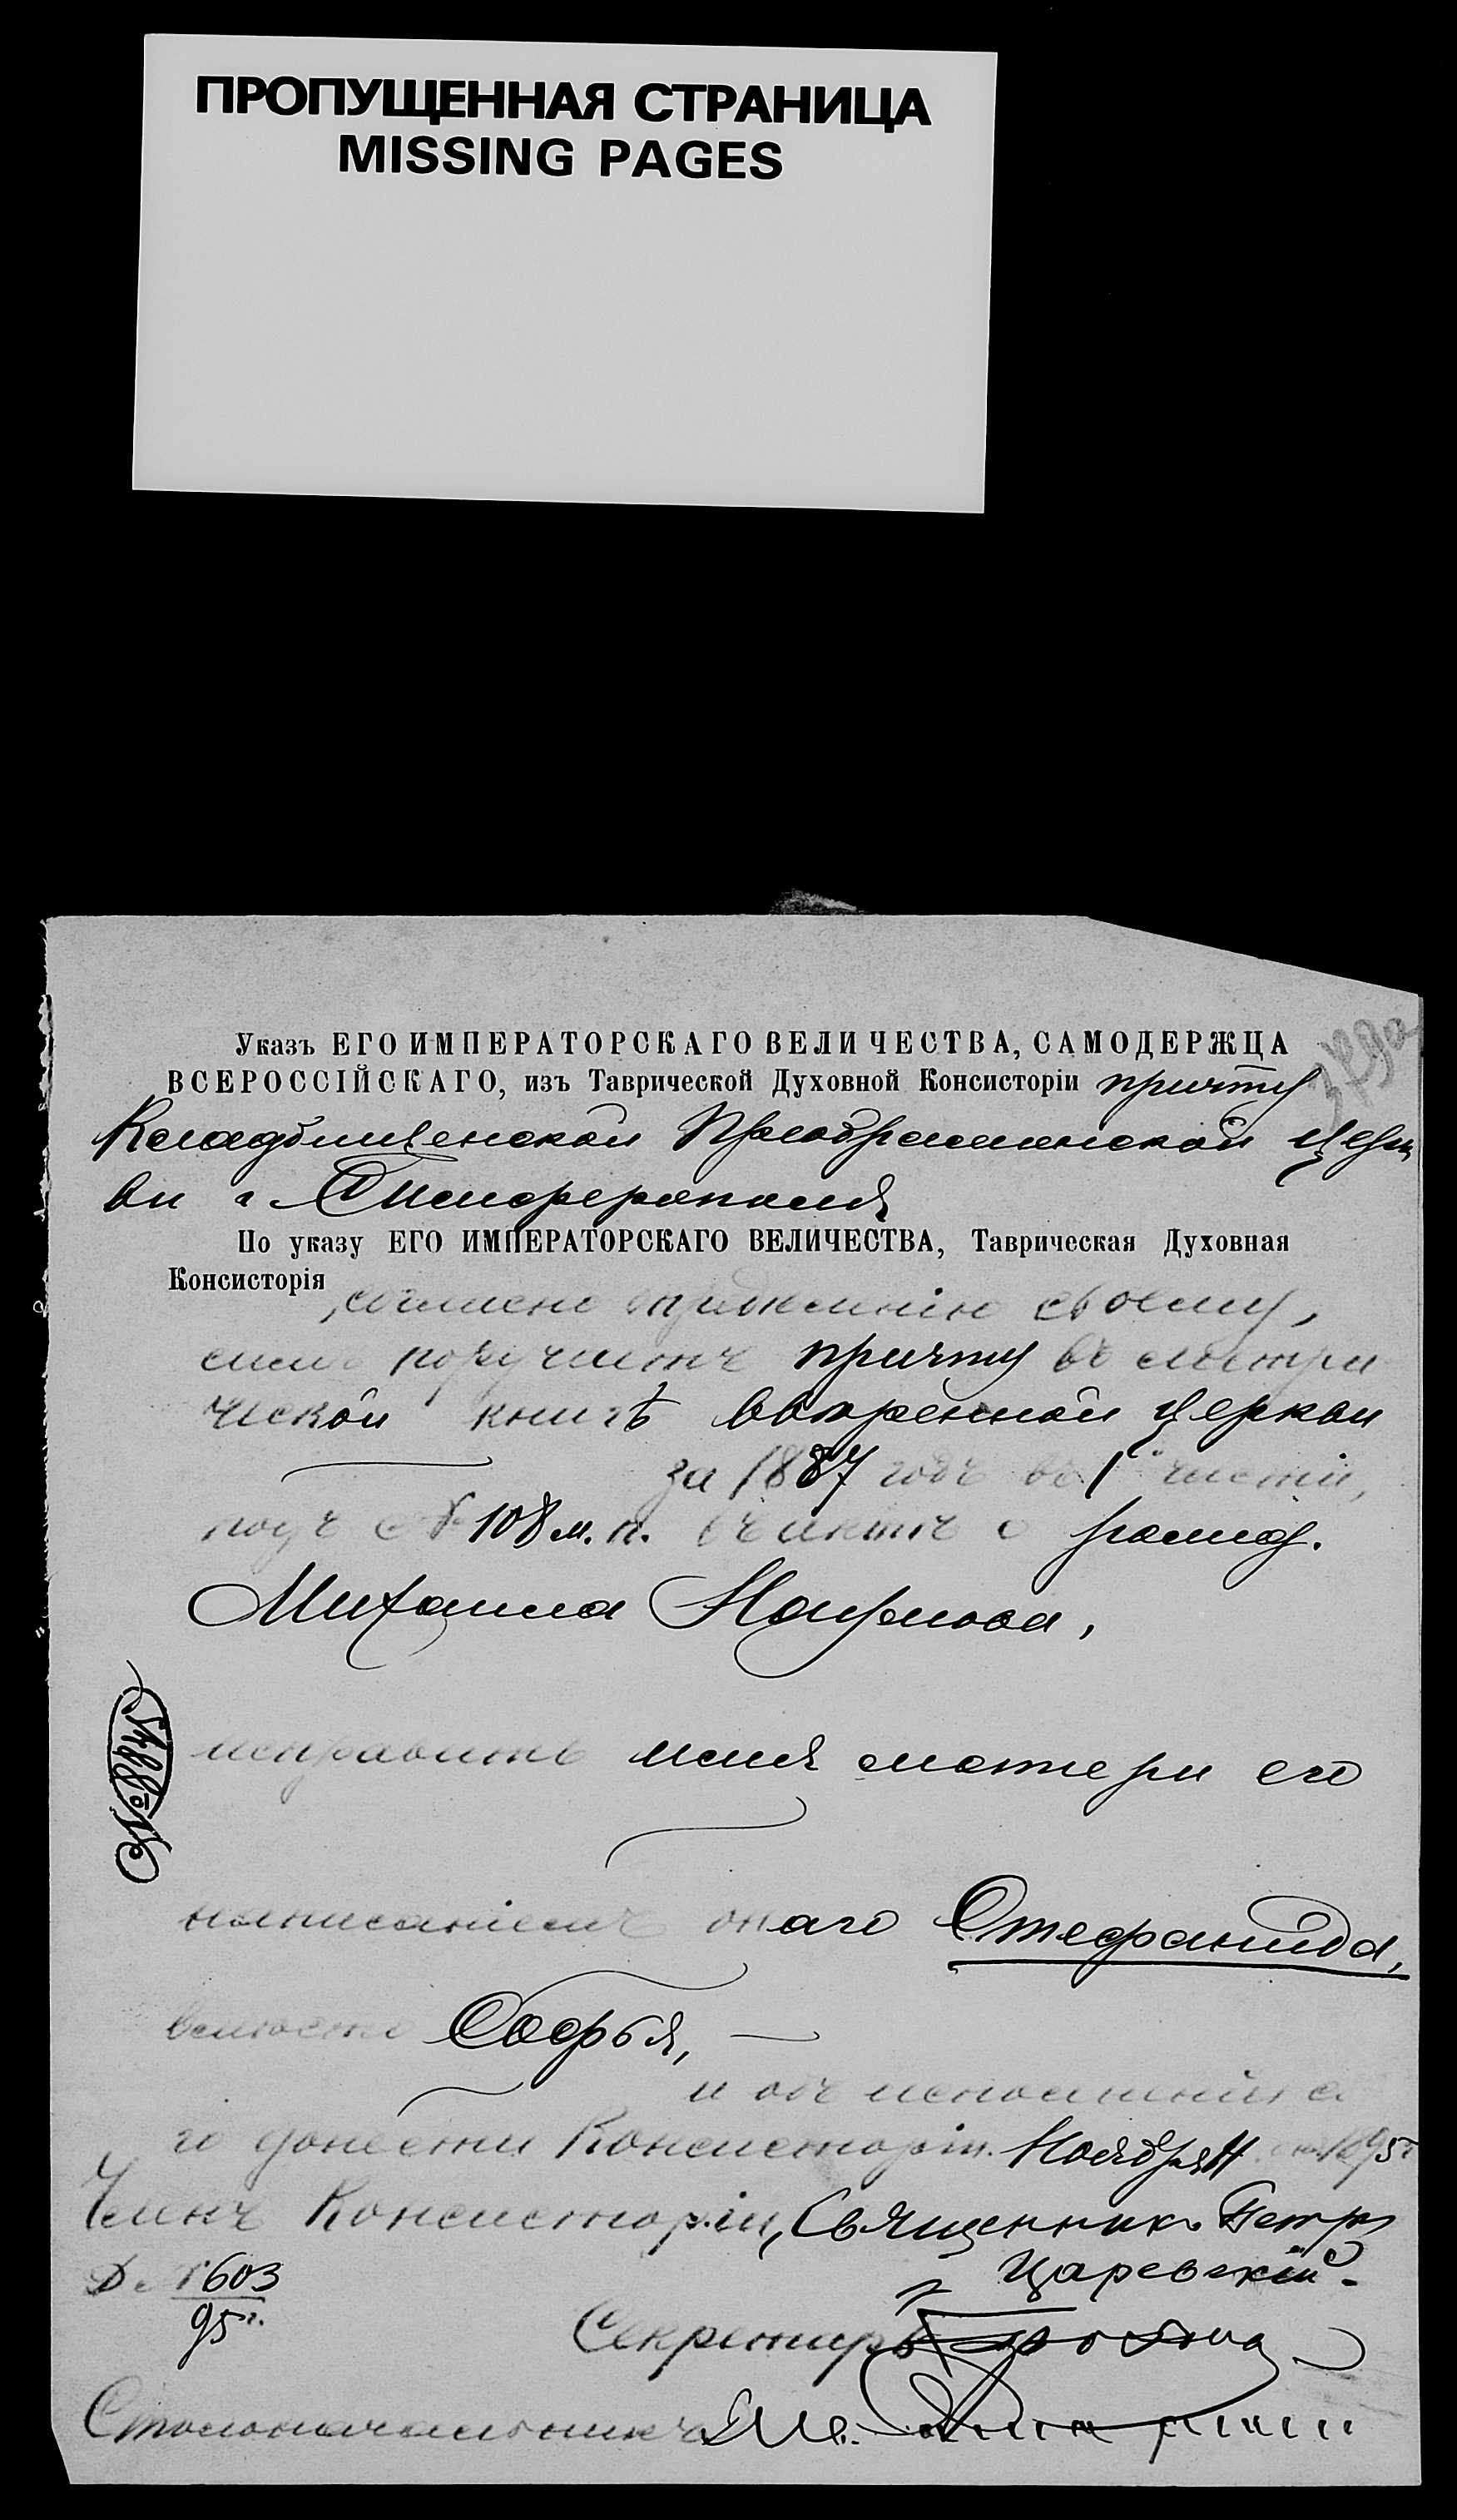 ПРОПУЩЕННАЯ СТРАНИЦА
MISSING PAGES
Указъ ЕГО ИМПЕРАТОРСКАГО ВЕЛИЧЕСТВА, САМОДЕРЖЦА
ВСЕРОССІЙСКАГО, изъ Таврической Духовной Консисторіи причту
Кладбищенской Преображенской церк
ви г. Симферополя
По указу ЕГО ИМПЕРАТОРСКАГО ВЕЛИЧЕСТВА, Таврическая Духовная
Консисторія, согласно опредѣленію своему,
симъ поручаетъ причту въ метри
ческой книгѣ ввѣренной церкви
за 1887 годъ въ 1 части,
подъ № 108 м. п. въ актѣ о рожд.
Михаила Наумова,
исправить имя матери его
написаніемъ онаго Стефанида,
вмѣсто Софья,
и объ исполненіи се
го донести Консисторіи. Ноября 11 1895 г
Членъ Консисторіи, Священникъ Петръ
Царевскій.
Д. № 603
95 г.
Секретарь
Столоначальникъ
№ 8845